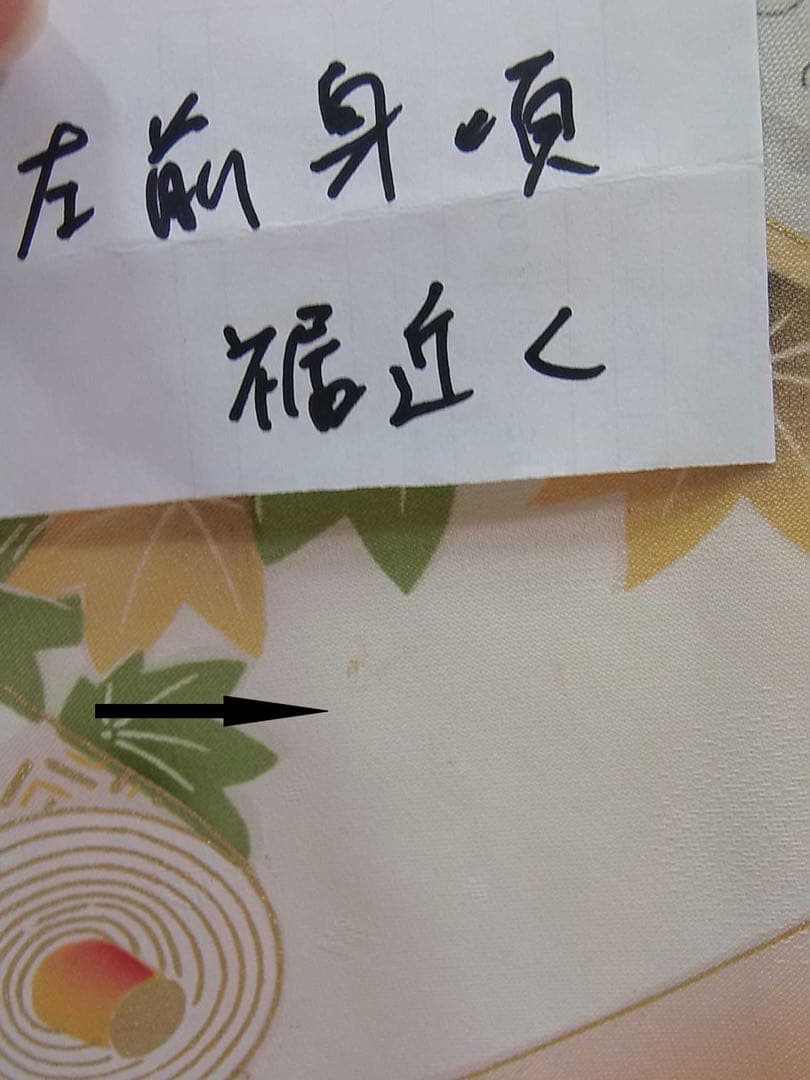 左前身頃
裾近く